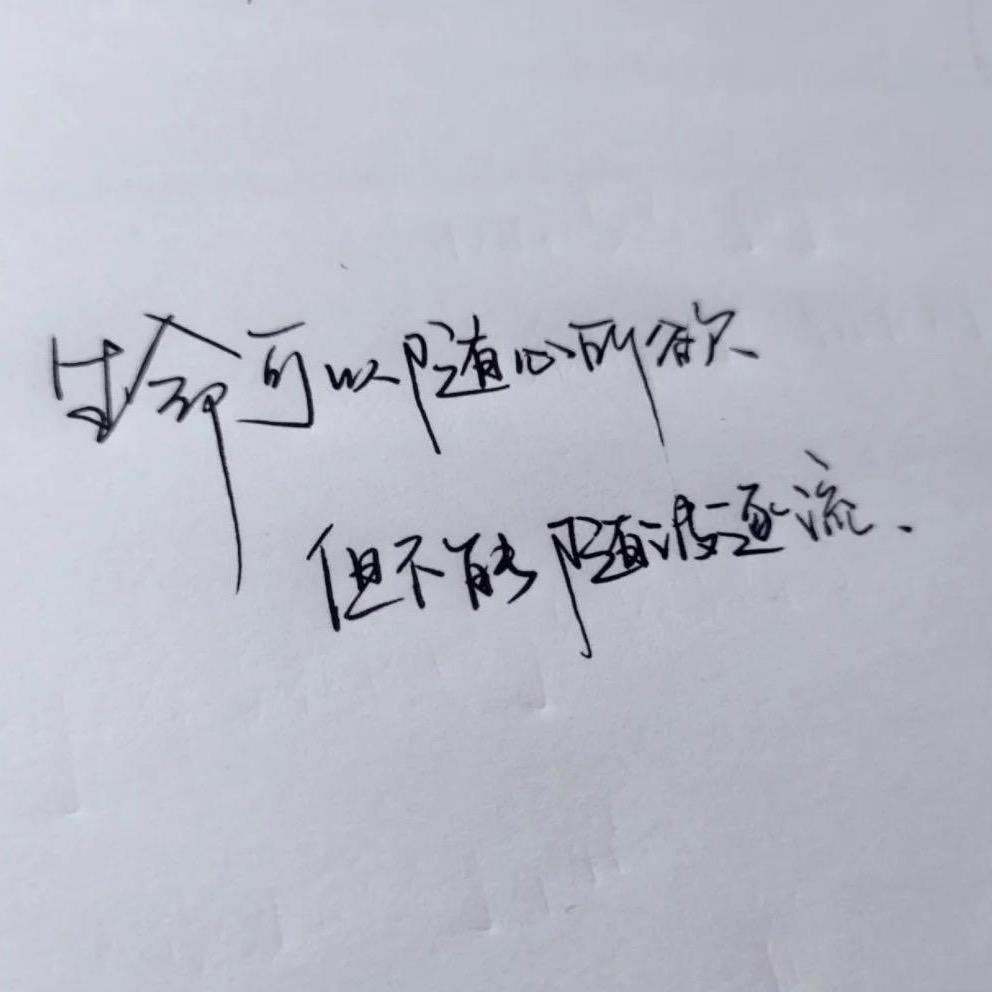 生命可以随心所欲
但不能随波逐流.